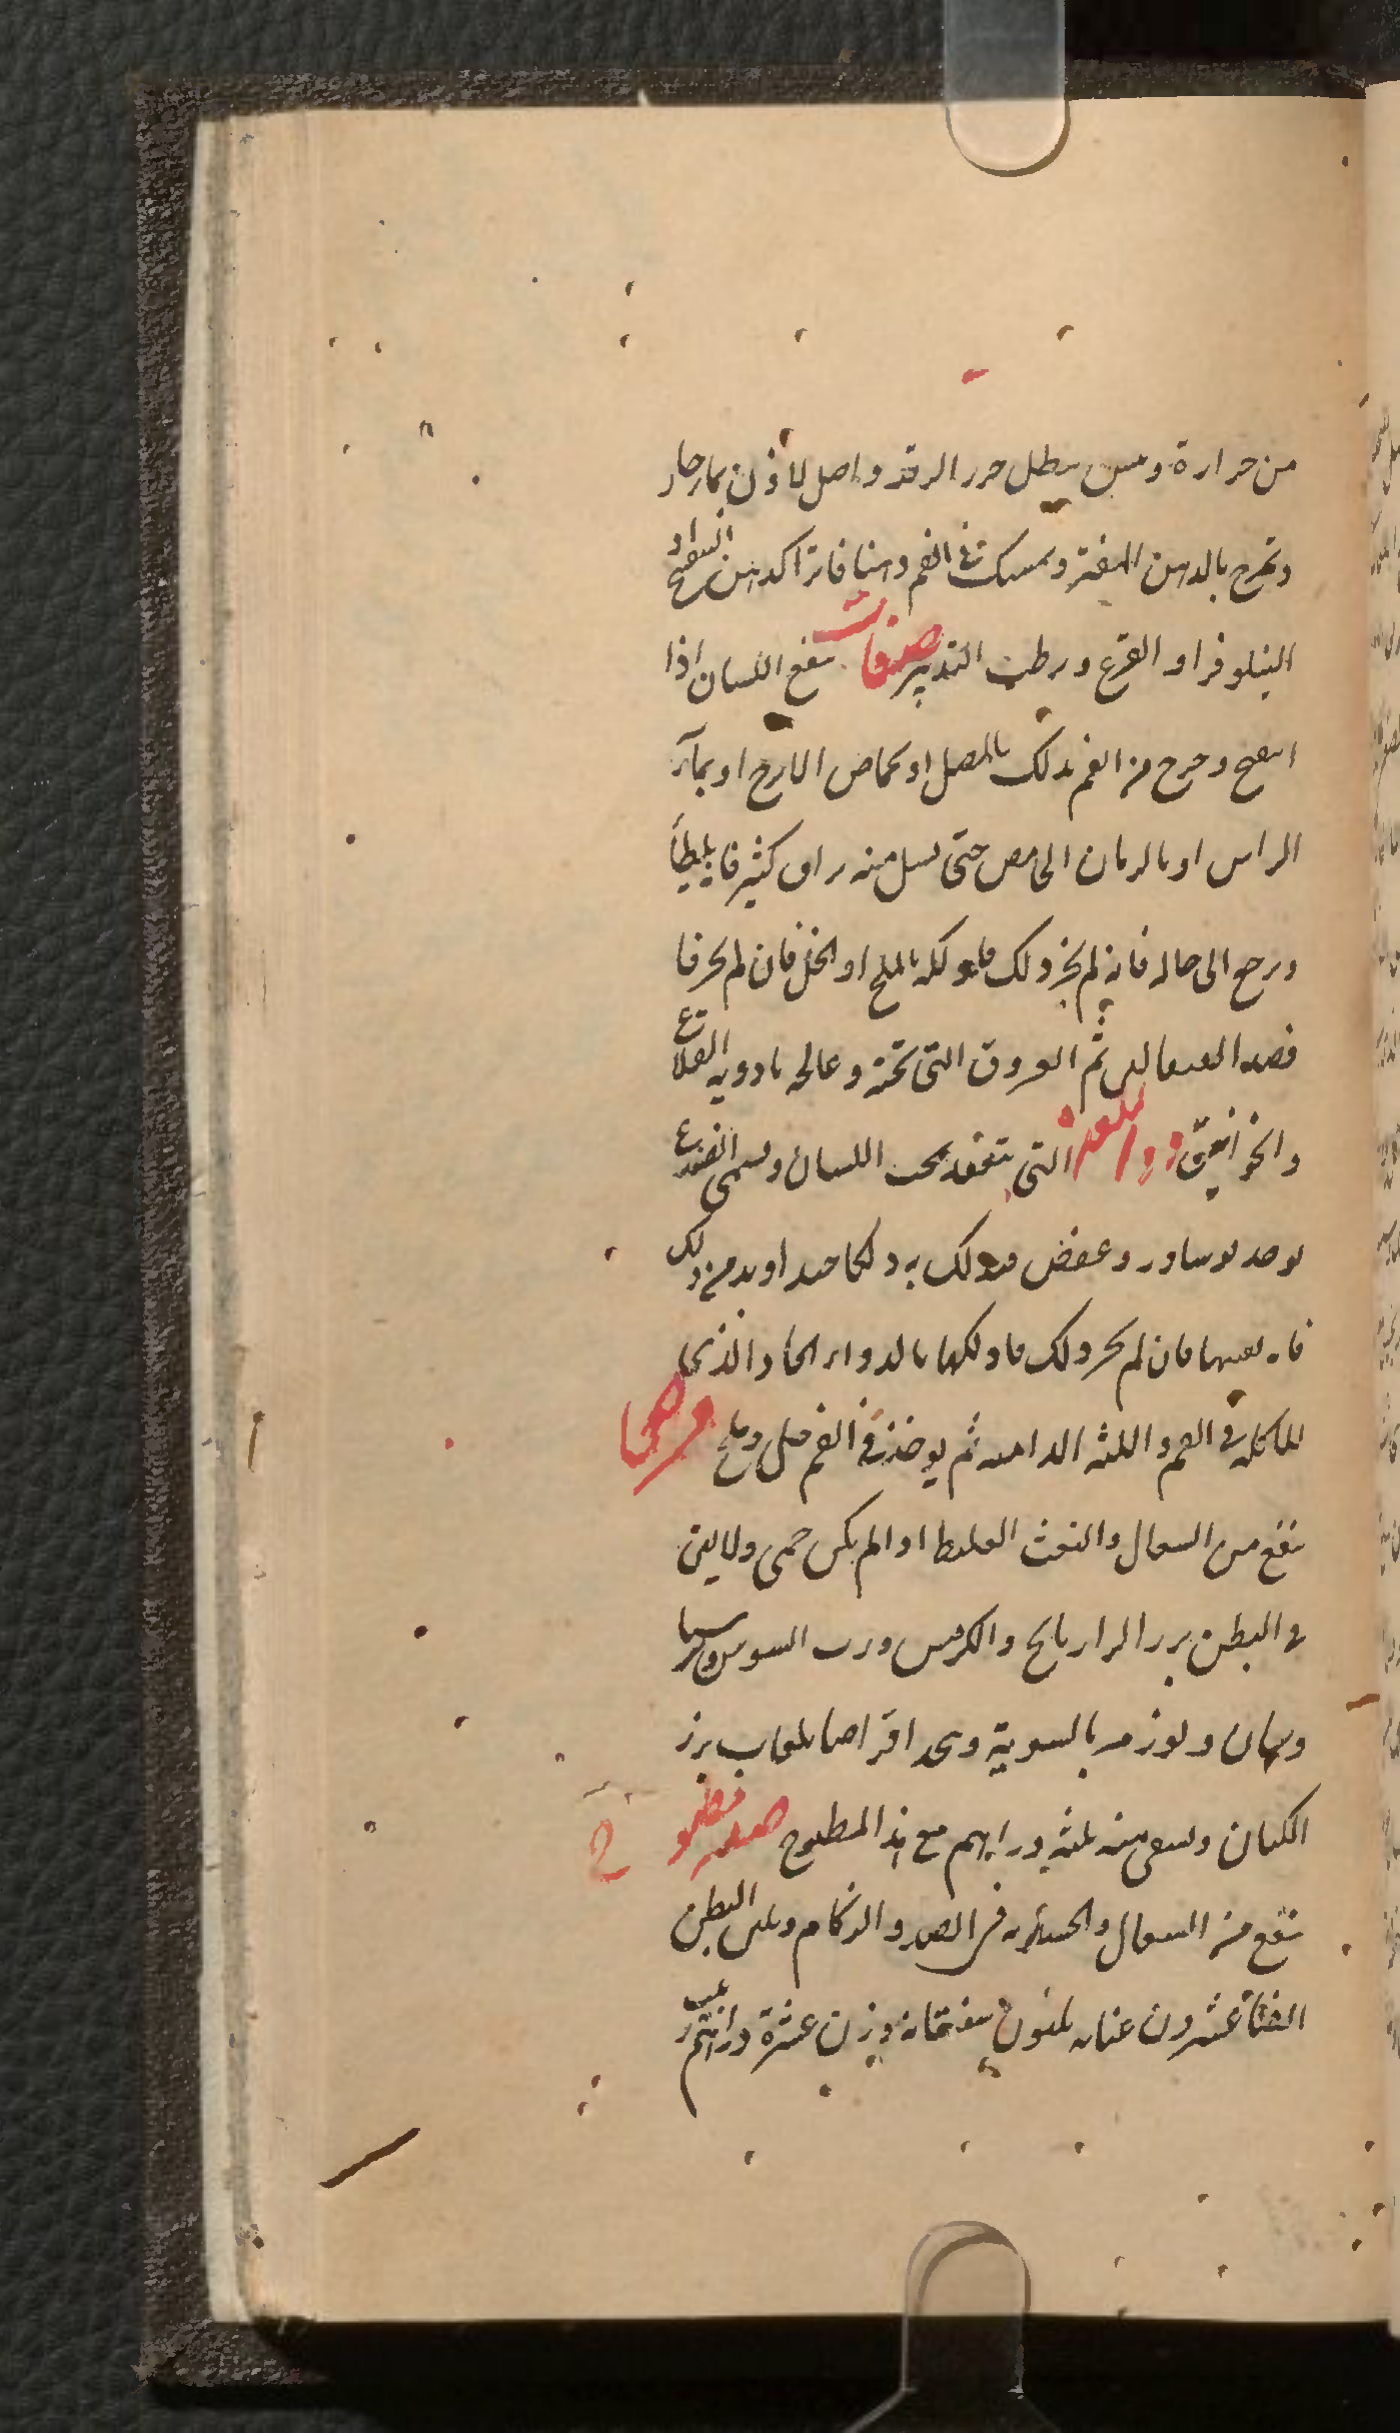 من حرارة ويبس يبطل حرز الرقبة واصل الاذن بماء حار
وتمرخ بالدهن المفتر ويمسك في الفم دهنا فاترا كدهن البنفسج او
النيلوفر او القرع ورطب التدبير صفات ينفع اللسان اذا
انتفخ وخرج من الفم يدلك بالمصل او بحماض الاترج او بماء
الراس او بالرمان الحامض حتى يسيل منه براق كثير فانه يلطأ
ويرجع الى حاله فان لم يجز ذلك فادلكه بالملح او الخل فان لم يجز فا
فصد القيفالين ثم العروق التى تحته وعالجه بادوية القلاع
والخوانيق دوا للعقدة التى تنعقد تحت اللسان وتسمى الضفدع
يوخذ نوشادر وعفص فيدلك به دلكا جيدا ويدمن ذلك
فانه يفنيها فان لم يجز ذلك فادلكها بالدواء الحاد الذى
للاكلة فى الفم واللثة الدامية ثم يوخذ فى الفم خل وملح قرص
ينفع من السعال والنفث الغليظ اذا لم يكن حمى ولا لين
فى البطن بزر الرازيانج والكرفس ورب السوس وبرسيا
وشان ولوز مر بالسوية ويتخذ اقراصا بلعاب بزر
الكتان ويسقى منه ثلثة دراهم مع هذا المطبوخ صفة مطبوخ
ينفع من السعال والخشونة فى الصدر والزكام ويلين البطن
الصفة عشرون عنابة ثلثون سفستانة وزن عشرة دراهم زبيب